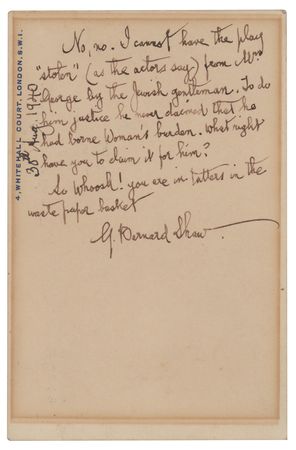 4, WHITEHALL COURT, LONDON, S.W.1.
30th Aug. 1940
No, no. I cannot have the play
"stolen" (as the actors say) from Mrs
George by the Jewish gentleman. To do
him justice he never claimed that he
had borne Woman's burden. What right
have you to claim it for him?
So Whoosh! you are in tatters in the
waste paper basket
G. Bernard Shaw.